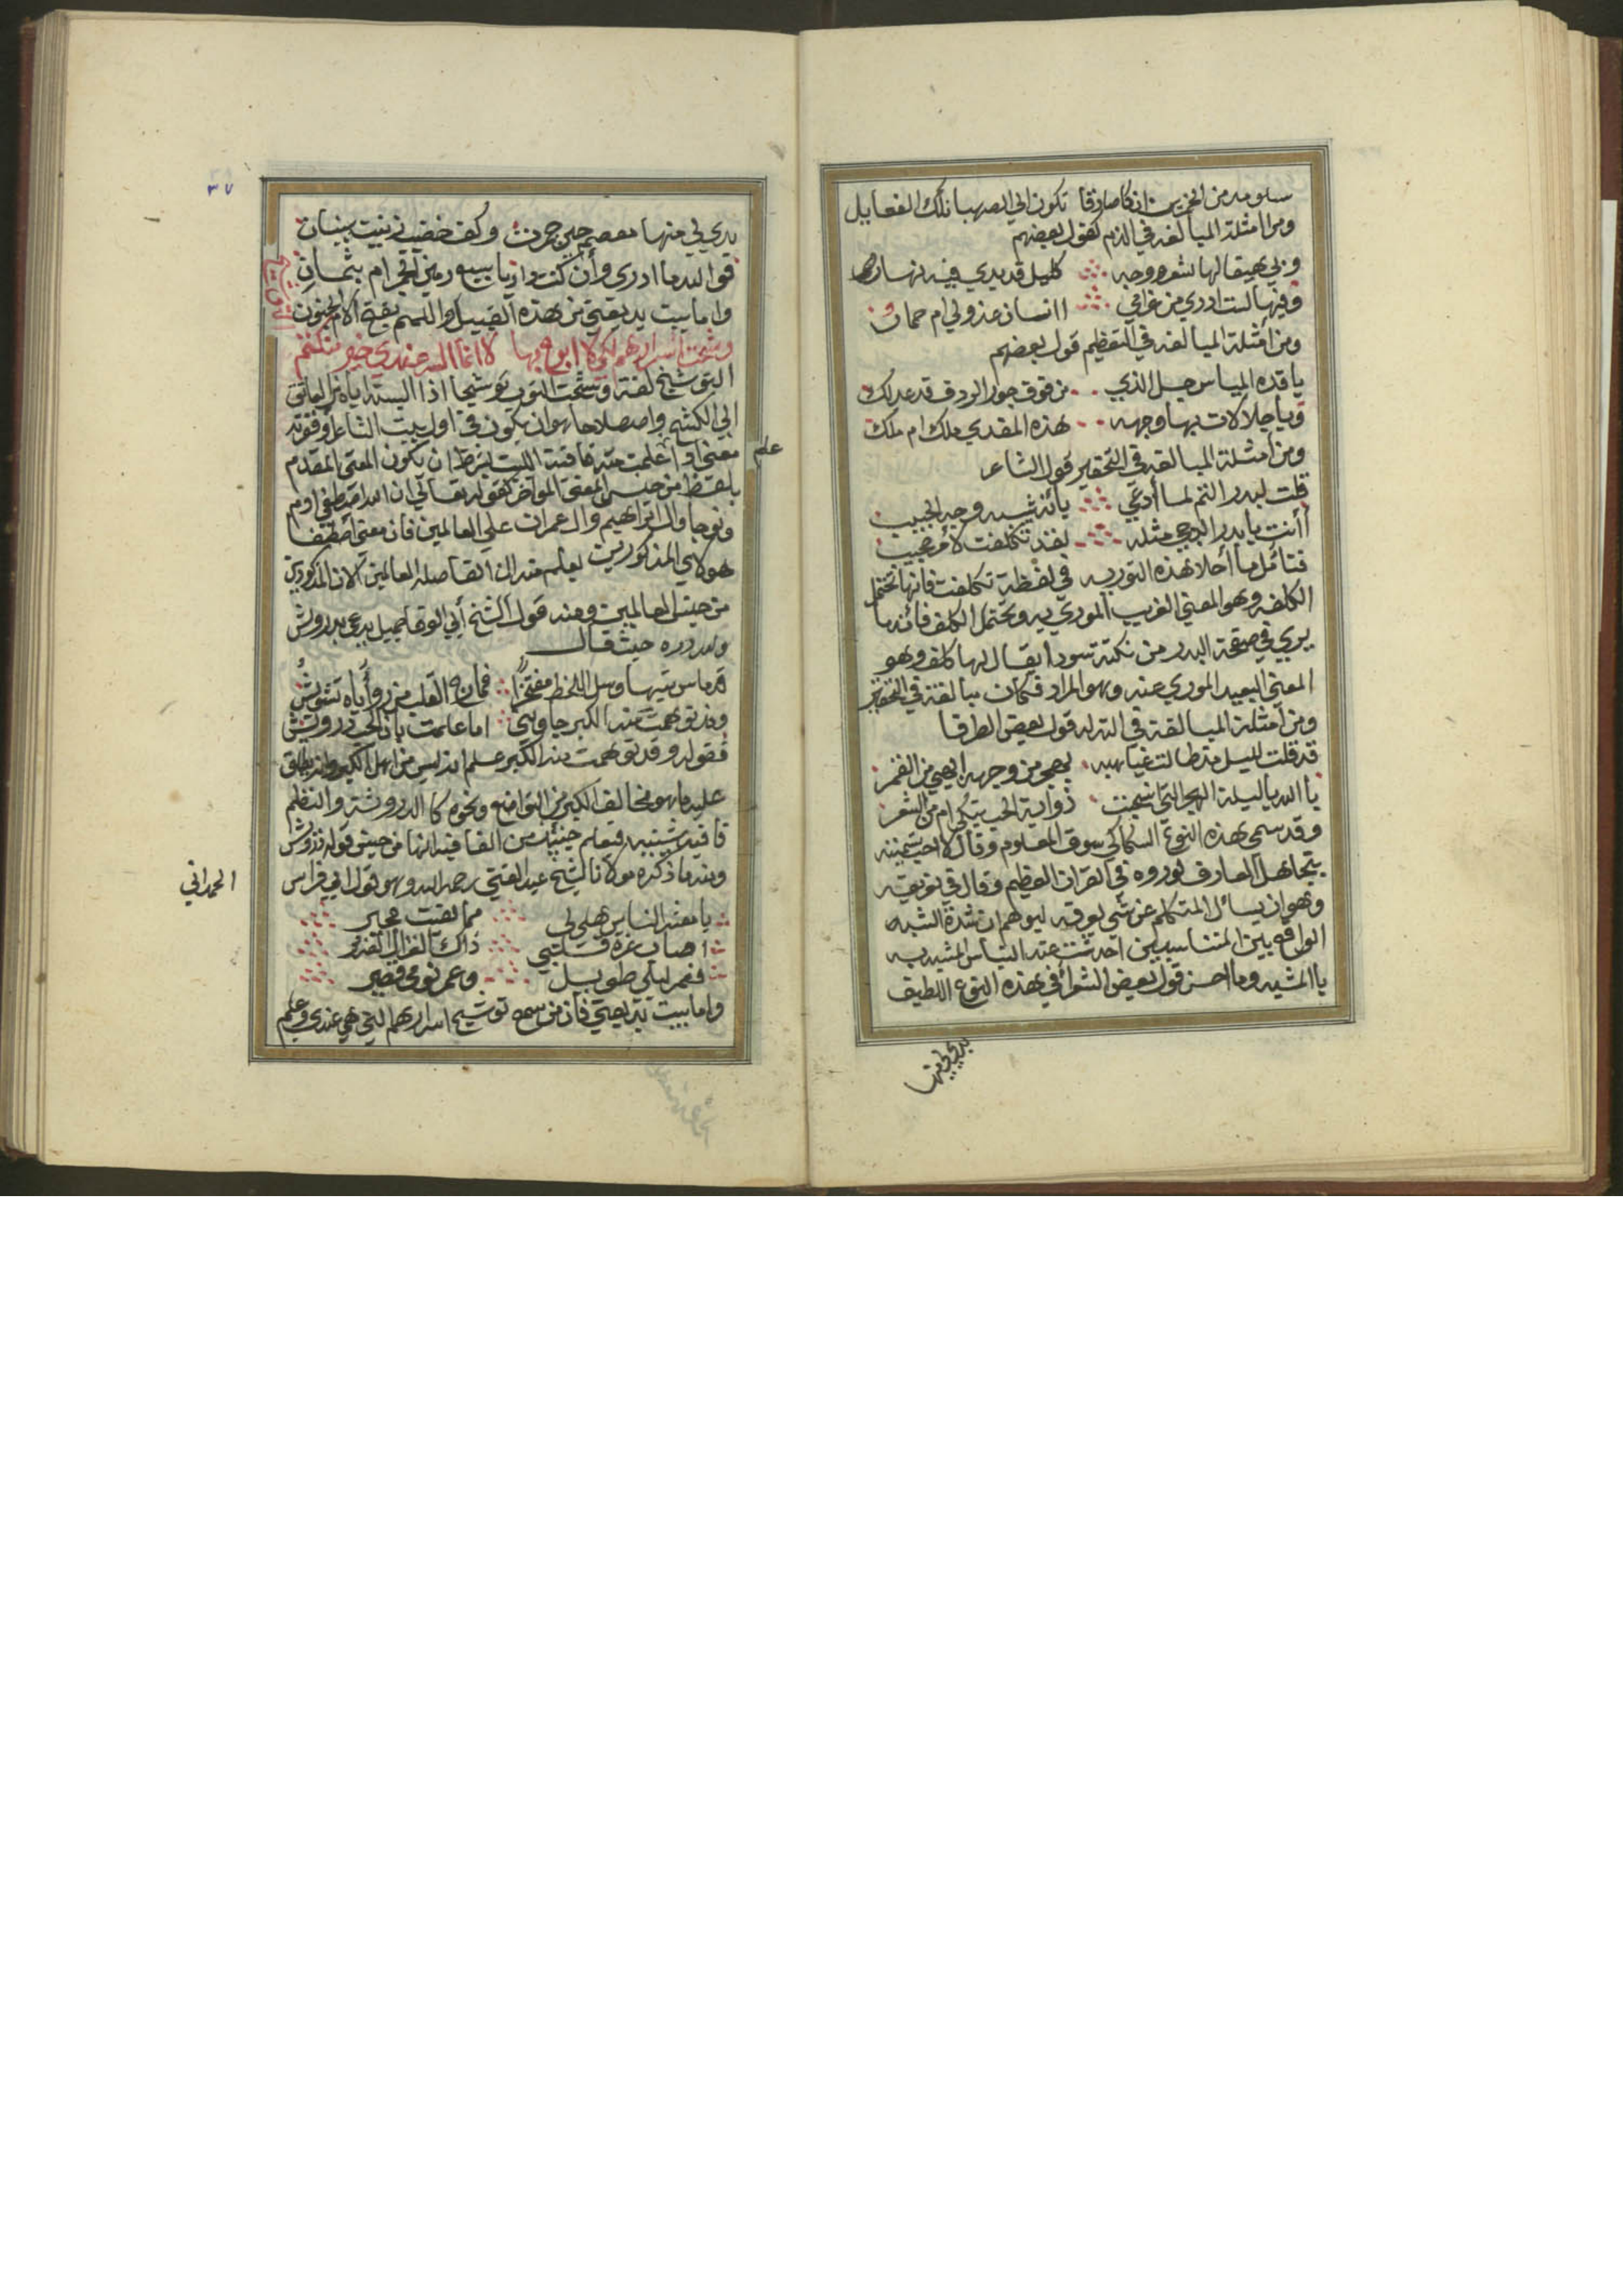 سلو مدمن الخمرين ان كا صادقا تكون الي الصهبا تلك الفعايل
ومن امثلة المبالغه في الذم كقول بعضهم
وبي هيفا لها شعر ووجه كليل قد بدي فيه نهار
وفيها لست ادري من غرامي اانسان عذولي ام حمار
ومن أمثلة المبالغه في التعظيم قول بعضهم
يا قده المياس جل الذي من فوق جور الردف قد عدلك
ويا جلالات بها وجهه هذه المفدي ملك ام ملك
ومن أمثلة المبالغه في التحقير قول الشاعر
قلت لبدر التم لما أدعي بأنه شبه وجه الحبيب
أأنت يا بدر الدجي مثله لقد تكلفت لأمر عجيب
فتأمل ما أحلا هذه التوريه في لفظة تكلفت فانها تحتمل
الكلفه وهو المعني القريب الموري به وتحتمل الكلف فأنه ما
يري في صفحة البدر من نكتة سودا يقال لها كلف وهو
المعني البعيد الموري عنه وهو المراد فكان مبالغة في التحقير
ومن أمثلة المبالغة في التدله قول بعض الظرفا
قد قلت لليل مذ طالت غياهبه بمن وجهه ابهي من القمر
يا الله يا ليلة الهجر التي سجنت ذوابة الحب ام من الشعر
وقد سمي هذه النوع السكاكي سوق المعلوم وقال لا احب تسميته
بتجاهل العارف لوروده في القران العظيم وقال في تعريفه
وهو ان يسائل المتكلم عن شي يعرفه ليوهم ان شدة الشبه
الواقع بين المتناسبين احدثت عنده التباس المشبه به
با المشبه وما احسن قول بعض الشعرا في هذه النوع اللطيف
بدي لي منها
٣٧
بدي لي منها معصم حين جمرت وكف خضيب زينت ببنان
فوالله ما ادري وأن كنت داريا بسبع رمين الجمر ام بثمان
واما بيت بديعتي من هذه القبيل واللمم بفتح اللام الجنون
وشحت اسرارهم لكي لا ابوح بها لا انما السر عندي خير مكتتم
التوشيخ لغة وشحت الثوب توشيحا اذا البسته اياه من العاتق
الي الكشح واصطلاحا هو ان يكون في اول بيت الشاعر او فقرته
معني اذا علمت منه قافية البيت بشرط ان يكون المعني المقدم
علم
بلفظ من جنس المعني المواخر كقوله تعالي ان الله اصطفي ادم
ونوحا وال ابراهيم وال عمران علي العالمين فان معني اصطفا
هولاي المذكورين يعلم منه ان الفاصلة العالمين لان المذكورين
من جنس العالمين ومنه قول الشيخ أبي الوفا بجميل يدعي بدرويش
ولله دره حيث قال
قد ماس تيها وسل اللحظ مفتخرا فحان القلب من رؤاياه تشويش
وقد توهمت منه الكبر جاوبني اما علمت بان الحب درويش
فقوله وقد توهمت منه الكبر علم انه ليس من اهل الكبر وانه يطلق
عليه ما هو مخالف الكبر من التواضع ونحوه كا الدروشة والنظم
قافيه شينيه فتعلم حينئذ من القافيه انها من جنس قوله درويش
ومنه ما ذكره مولانا الشيخ عبد الغني رحمه الله وهو قول ابي فراس
الحمداني
يا معشر الناس هل لي مما لقيت مجير
اصاب غرة قلبي ذاك الغزال الغدير
فعمر ليلي طويل وعمر نومي قصير
واما بيت بديعتي فان من سمع توشيح اسرارهم التي هي عندي وعلم